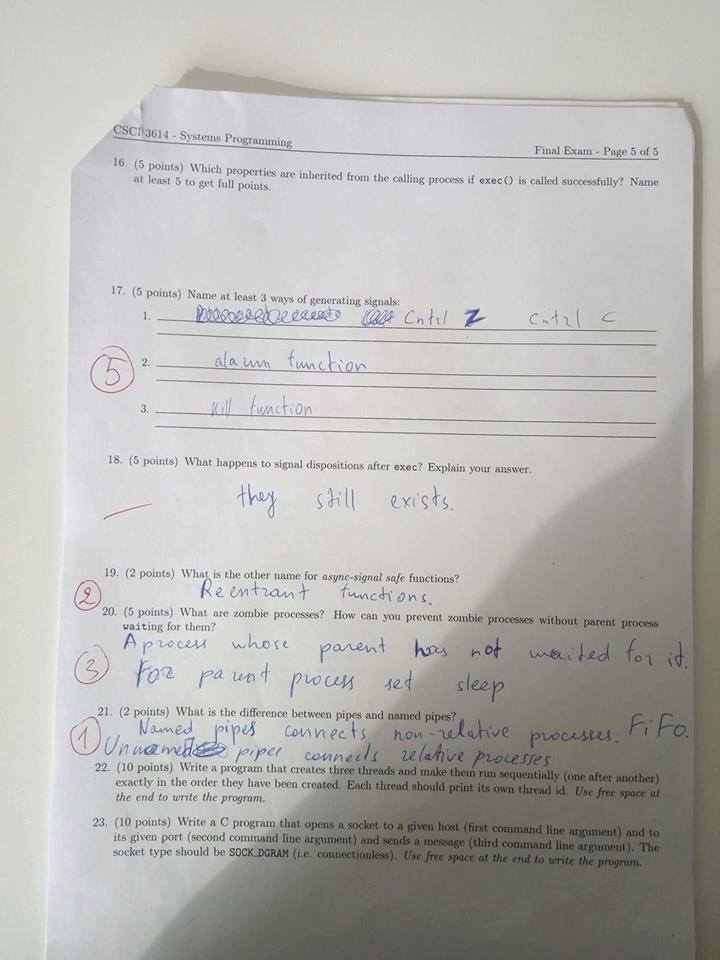 CSCI 3614 - Systems Programming
Final Exam - Page 5 of 5
16. (5 points) Which properties are inherited from the calling process if exec() is called successfully? Name
at least 5 to get full points.
17. (5 points) Name at least 3 ways of generating signals:
1. Cntrl Z Cntrl C
5
2. alarm function
3. kill function
18. (5 points) What happens to signal dispositions after exec? Explain your answer.
they still exists.
19. (2 points) What is the other name for async-signal safe functions?
2
Reentrant functions.
20. (5 points) What are zombie processes? How can you prevent zombie processes without parent process
waiting for them?
A process whose parent has not waited for it.
3
For parent process set sleep
21. (2 points) What is the difference between pipes and named pipes?
1
Named pipes connects non-relative processes. FiFo.
Unnamed pipes connects relative processes
22. (10 points) Write a program that creates three threads and make them run sequentially (one after another)
exactly in the order they have been created. Each thread should print its own thread id. Use free space at
the end to write the program.
23. (10 points) Write a C program that opens a socket to a given host (first command line argument) and to
its given port (second command line argument) and sends a message (third command line argument). The
socket type should be SOCK_DGRAM (i.e. connectionless). Use free space at the end to write the program.